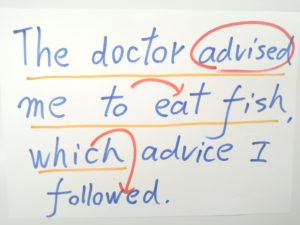 The doctor advised
me to eat fish,
which advice I
followed.